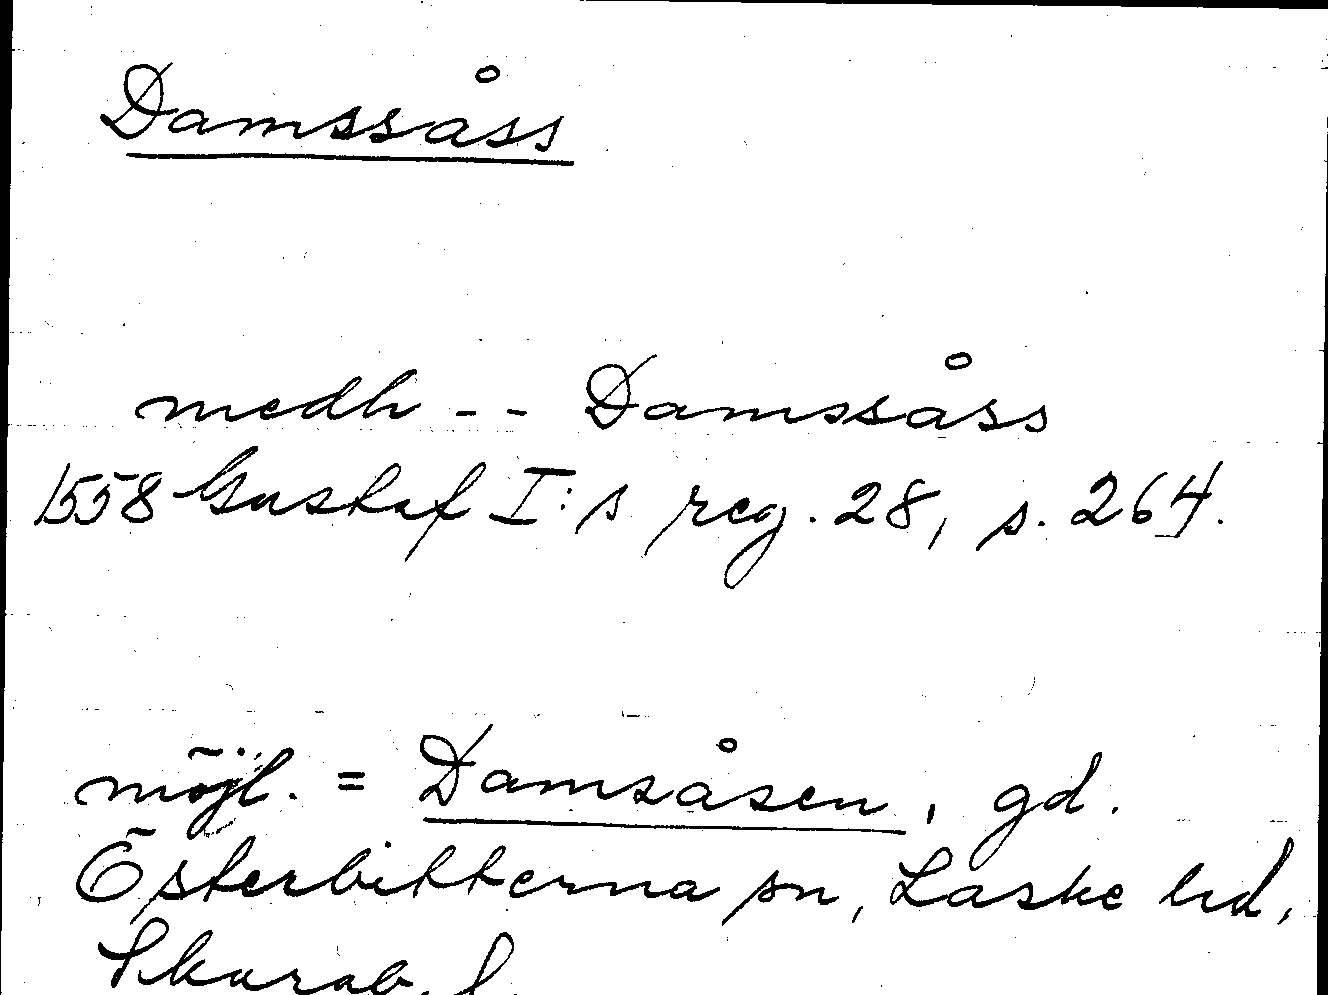 Damssåss
medh -- Damssåss
1558 Gustaf I:s reg. 28, s. 264.
möjl. = Damsåsen, gd.
Österbitterna sn, Laske hd,
Skarab. l.